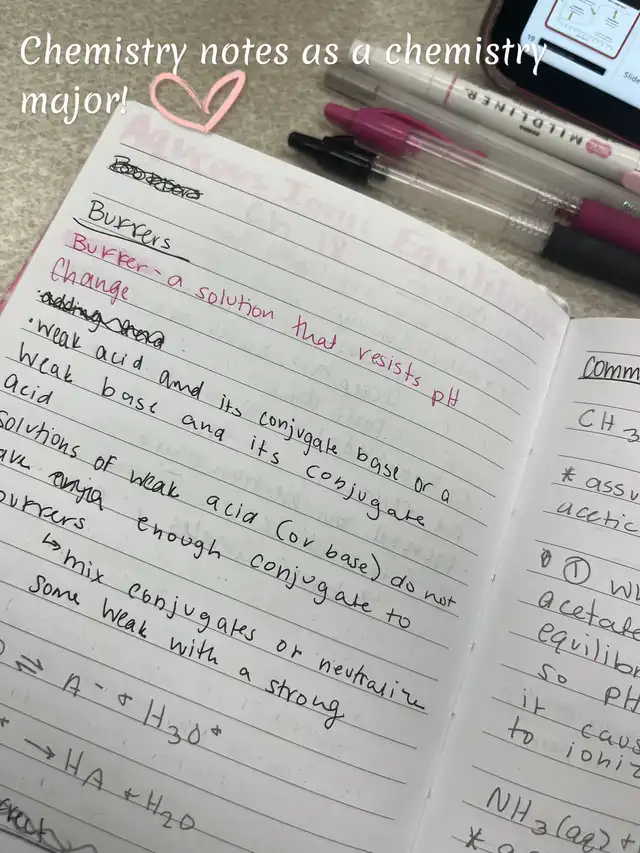 Chemistry notes as a chemistry
major!
MILDLINER
Slide
Buffers
Buffer - a solution that resists pH
Change
adding
· weak acid and its conjugate base or a
weak base and its conjugate
acid
solutions of weak acid (or base) do not
enough conjugate to
buffers
↳ mix conjugates or neutralize
some weak with a strong
⇌ A⁻ + H₃O⁺
→ HA + H₂O
CH₃
* assu
acetic
①
acetate
so pH
it caus
to ioniz
NH₃(aq) +